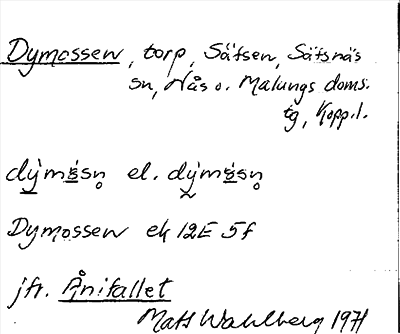 Dymossen, torp, Säfsen, Säfsnäs
sn, Nås o. Malungs doms.
tg, Kopp.l.
dýmåsn̥ el. dýmåsn̥
Dymossen ek 12E 5f
jfr. Ånifallet
Mats Wahlberg 1971